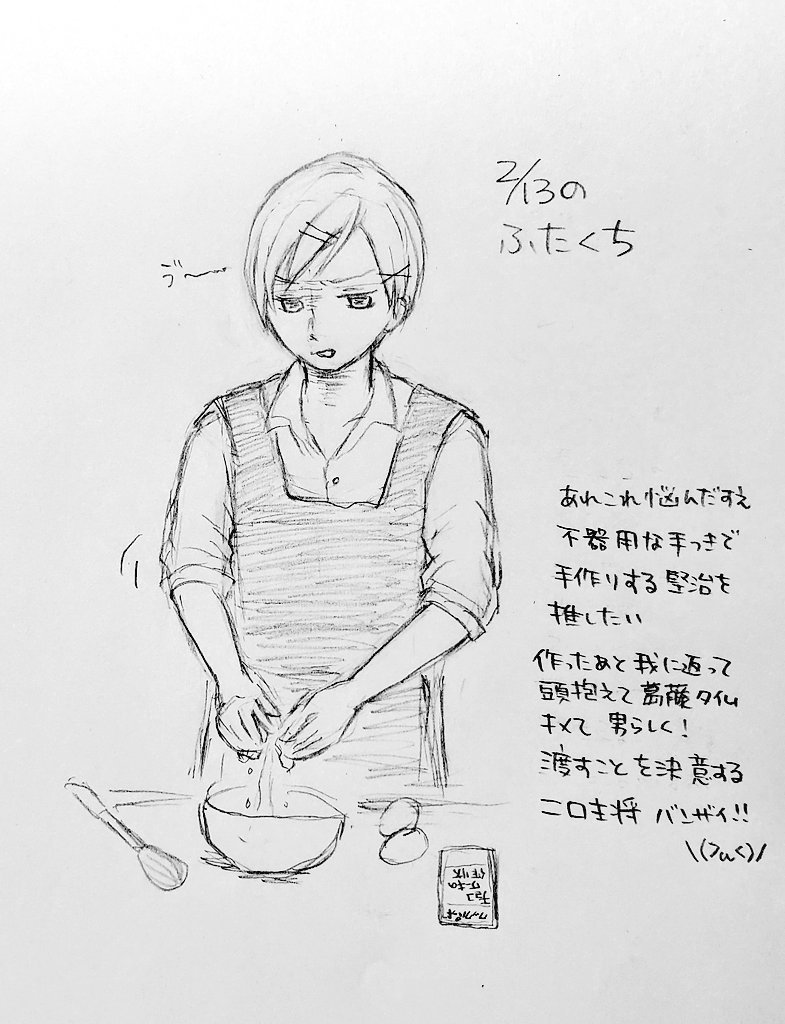 2/13の
ふたくち
ジ〜
あれこれ悩んだすえ
不器用な手つきで
手作りする堅治を
推したい
作ったあと我に返って
頭抱えて葛藤タイム
キメて男らしく!
渡すことを決意する
二口主将 バンザイ!!
\(>ω<)/
クックパッド
チョコ
ケーキの
作り方